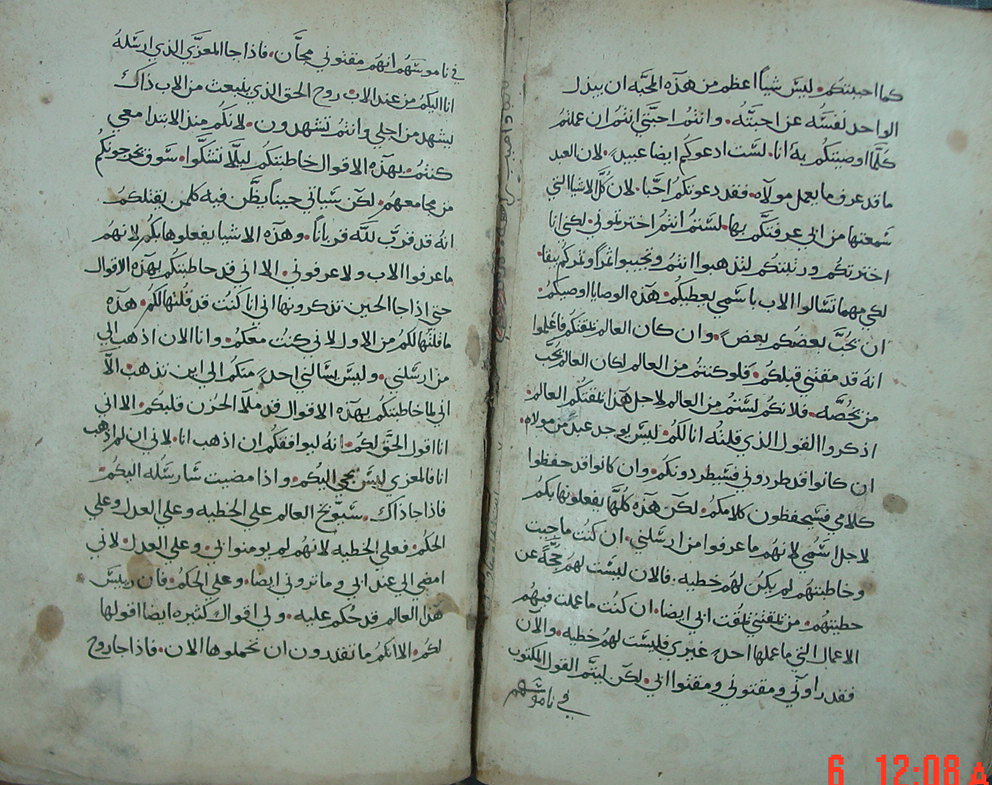 كما احببتكم. ليس شياً اعظم من هذه المحبه ان يبذل
الواحد نفسه عن احبته. وانتم احبتي انتم ان عملتم
كلما اوصيتكم به انا. لست ادعوكم ايضا عبيد. لان العبد
ما قد عرف ما يعمل مولاه. فقد دعوتكم احبا. لان كل الاشيا التي
سمعتها من ابي عرفتكم بها. لستم انتم اخترتموني. لكني انا
اخترتكم ورتبتكم لتذهبوا انتم وتجيبوا ثمراً وثمركم يبقا.
لكي مهما تسالوا الاب باسمي يعطيكم. هذه الوصايا اوصيكم.
ان يحب بعضكم بعض. وان كان العالم يمقتكم فاعلموا
انه قد مقتني قبلكم. فلو كنتم من العالم لكان العالم يحب
من يخصه. فلانكم لستم من العالم لاجل هذا يمقتكم العالم.
اذكروا القول الذي قلته انا لكم. ليس يوجد عبد من مولاه.
ان كانوا قد طردوني فسيطردونكم. وان كانوا قد حفظوا
كلامي فسيحفظون كلامكم. لكن هذه كلها يفعلونها بكم
لاجل اسمي لانهم ما عرفوا من ارسلني. ان كنت ما جيت
وخاطبتهم لم يكن لهم خطيه. فالان ليست لهم حجة عن
خطيتهم. من يمقتني يمقت ابي ايضا. ان كنت ما عملت فيهم
الاعمال التي ما عملها احد غيري فليست لهم خطيه. والان
فقد راوني ومقتوني ومقتوا ابي. لكن ليتم القول المكتوب
في ناموسهم
في ناموسهم انهم مقتوني مجان. فاذا جا المعزي الذي ارسله
انا اليكم من عند الاب. روح الحق الذي ينبعث من الاب ذاك
يشهد من اجلي وانتم تشهدون. لانكم منذ الابتدا معي
كنتم. بهذه الاقوال خاطبتكم ليلا تشكوا. سوف يخرجونكم
من مجامعهم. لكن سياتي حيناً يظن فيه كلمن يقتلكم
انه قد قرب لله قرباناً. وهذه الاشيا يفعلوها بكم لانهم
ما عرفوا الاب ولا عرفوني. الا اني قد خاطبتكم بهذه الاقوال
حتي اذا جا الحين تذكرونها اني انا كنت قد قلتها لكم. هذه
ما قلتها لكم من الاول لاني كنت معكم. وانا الان اذهب الي
من ارسلني. وليس يسالني احد منكم الي اين تذهب. الا
اني لما خاطبتكم بهذه الاقوال قد ملا الحزن قلبكم. الا اني
انا اقول الحق لكم. انه ليوافقكم ان اذهب انا. لاني ان لم اذهب
انا فالمعزي ليس يجي اليكم. واذا مضيت سارسله اليكم.
فاذا جا ذاك. سيوبخ العالم علي الخطيه وعلي العدل وعلي
الحكم. فعلي الخطيه لانهم لم يومنوا بي. وعلي العدل. لاني
امضي الي عند ابي وما تروني ايضا. وعلي الحكم. فان رييس
هذا العالم قد حكم عليه. ولي اقوال كثيره ايضا اقولها
لكم. الا انكم ما تقدرون ان تحملوها الان. فاذا جا روح
6 12:08 A